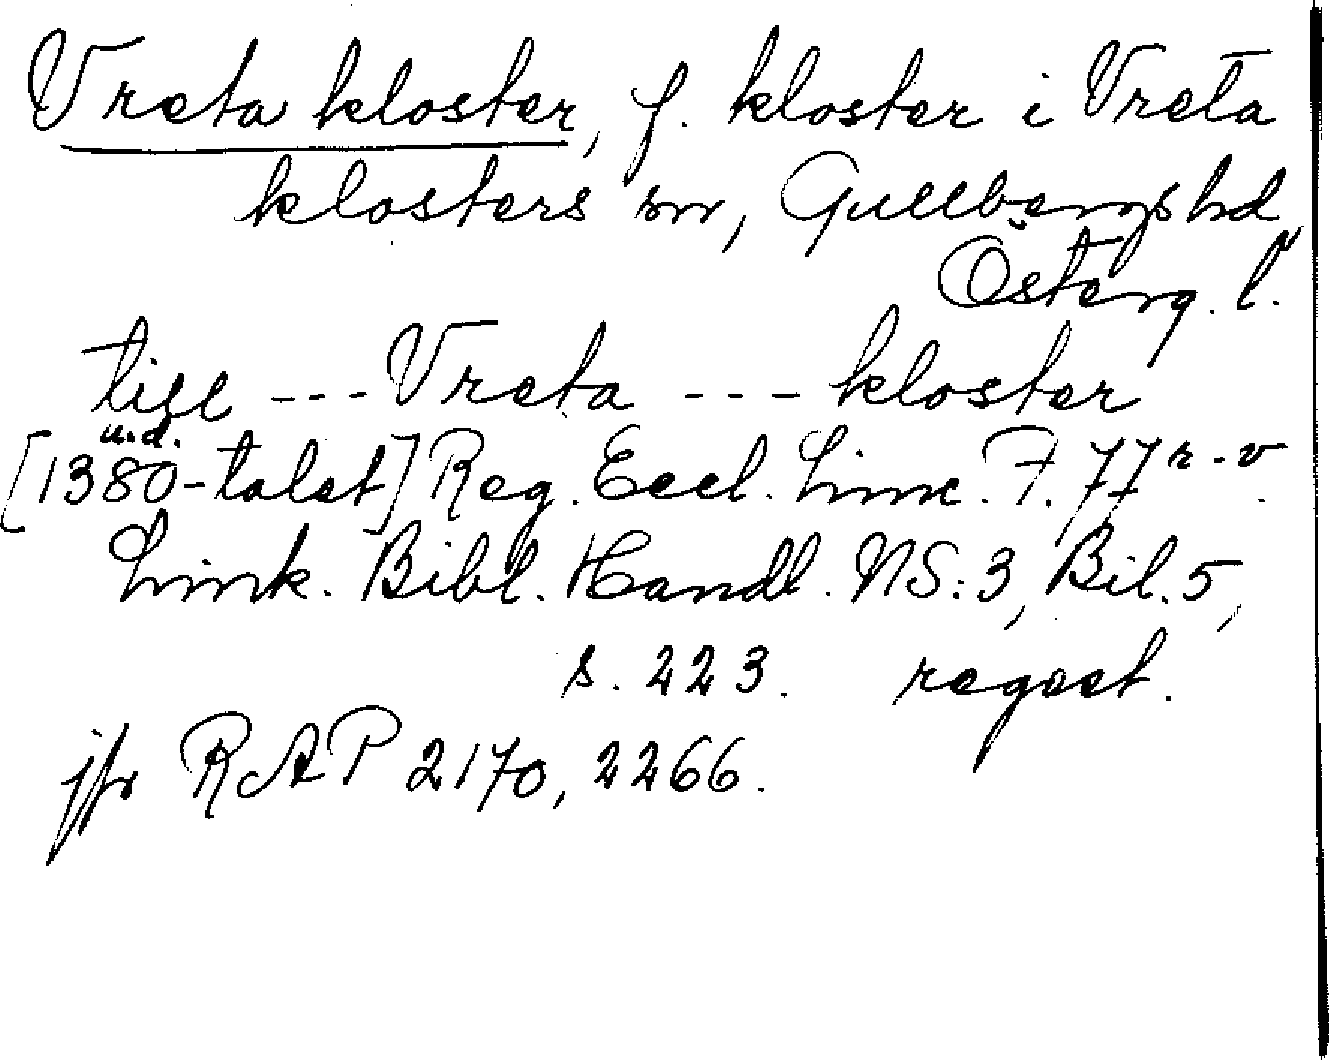 Vreta kloster, f. kloster i Vreta
klosters sn, Gullbergs hd,
Österg. l.
till --- Vreta --- kloster
u.d.
[1380-talet] Reg. Eccl. Linc. F. 77 r-v.
Link. Bibl. Handl. NS:3, Bil. 5,
s. 223. regest.
jfr RAP 2170, 2266.